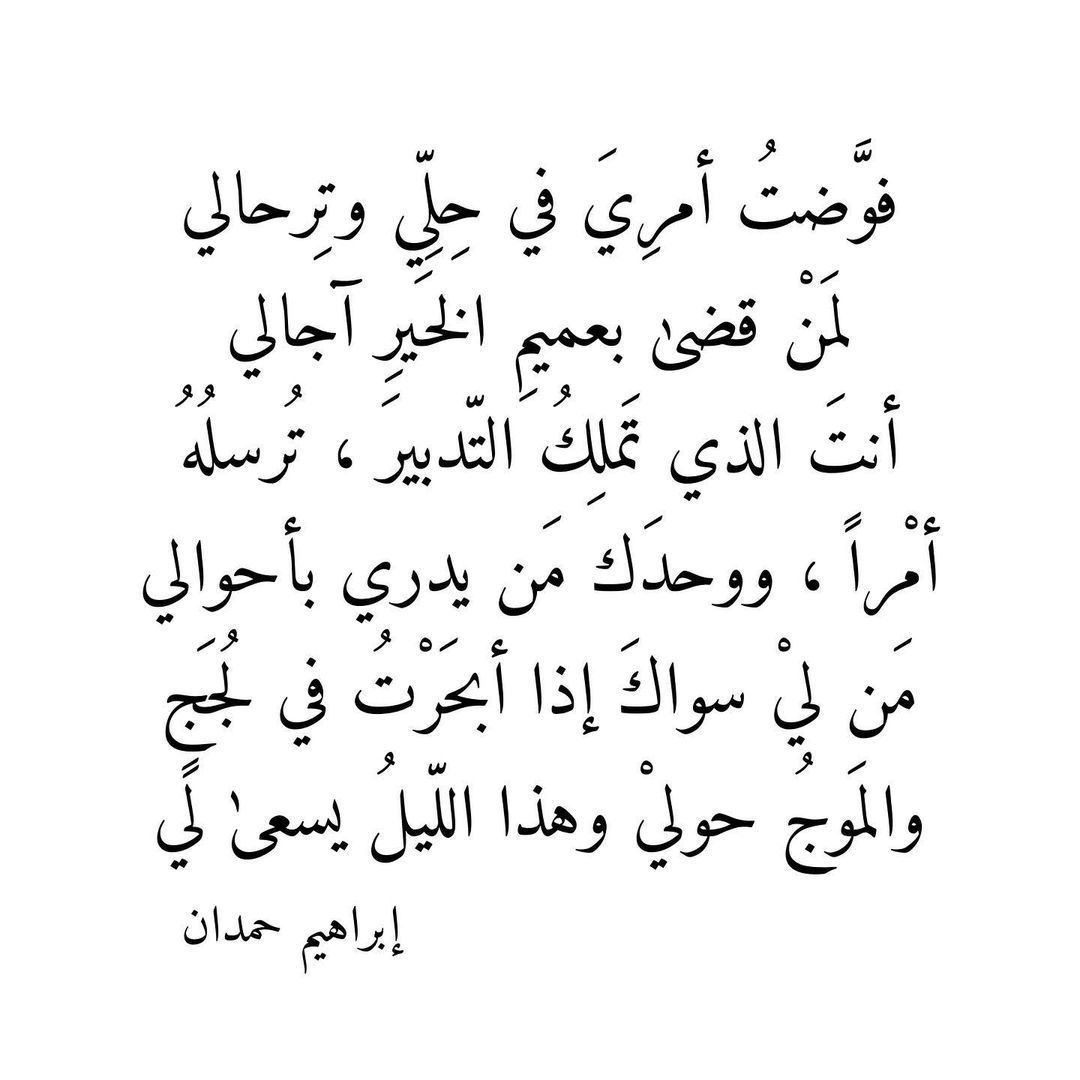 فوَّضتُ أمرِيَ في حِلِّي وتِرحالي
لمَنْ قضىٰ بعميمِ الخَيرِ آجالي
أنتَ الذي تَملِكُ التّدبيرَ ، تُرسلُهُ
أمْراً ، ووحدَك مَن يدري بأحوالي
مَن ليْ سواكَ إذا أبحَرْتُ في لُجَج
والمَوجُ حوليْ وهذا اللّيلُ يسعىٰ لًي
إبراهيم حمدان